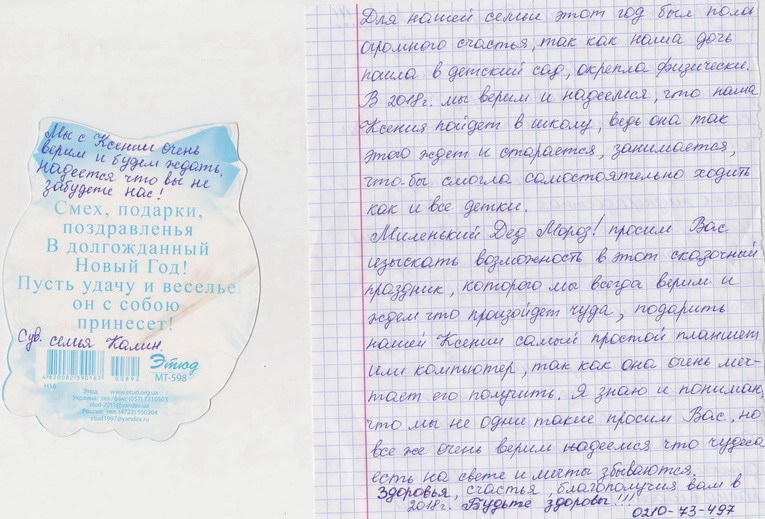 Мы с Ксенией очень
верим и будем ждать,
надеется что вы не
забудете нас!
Смех, подарки,
поздравленья
В долгожданный
Новый Год!
Пусть удачу и веселье
он с собою
принесет!
Сув. семья Калин.
Этюд
МТ-598
4820082590167 00692
Н16
Этюд www.etud.org.ua
Украина: тел./факс (057) 7210303
etud-2011@yandex.ua
Россия: тел. (4722) 550204
etud1997@yandex.ru
Для нашей семьи этот год был полон
огромного счастья, так как наша дочь
пошла в детский сад, окрепла физически.
В 2018г. мы верим и надеемся, что наша
Ксения пойдет в школу, ведь она так
этого ждет и старается, занимается,
что-бы смогла самостоятельно ходить
как и все детки.
Миленький Дед Мороз! просим Вас
изыскать возможность в этот сказочный
праздник, которого мы всегда верим и
ждем что произойдет чуда, подарить
нашей Ксении самый простой планшет
или компьютер, так как она очень меч-
тает его получить. Я знаю и понимаю,
что мы не одни такие просим Вас, но
все же очень верим надеемся что чудеса
есть на свете и мечты сбываются.
Здоровья, счастья, благополучия вам в
2018г. Будьте здоровы!!!
0210-73-497